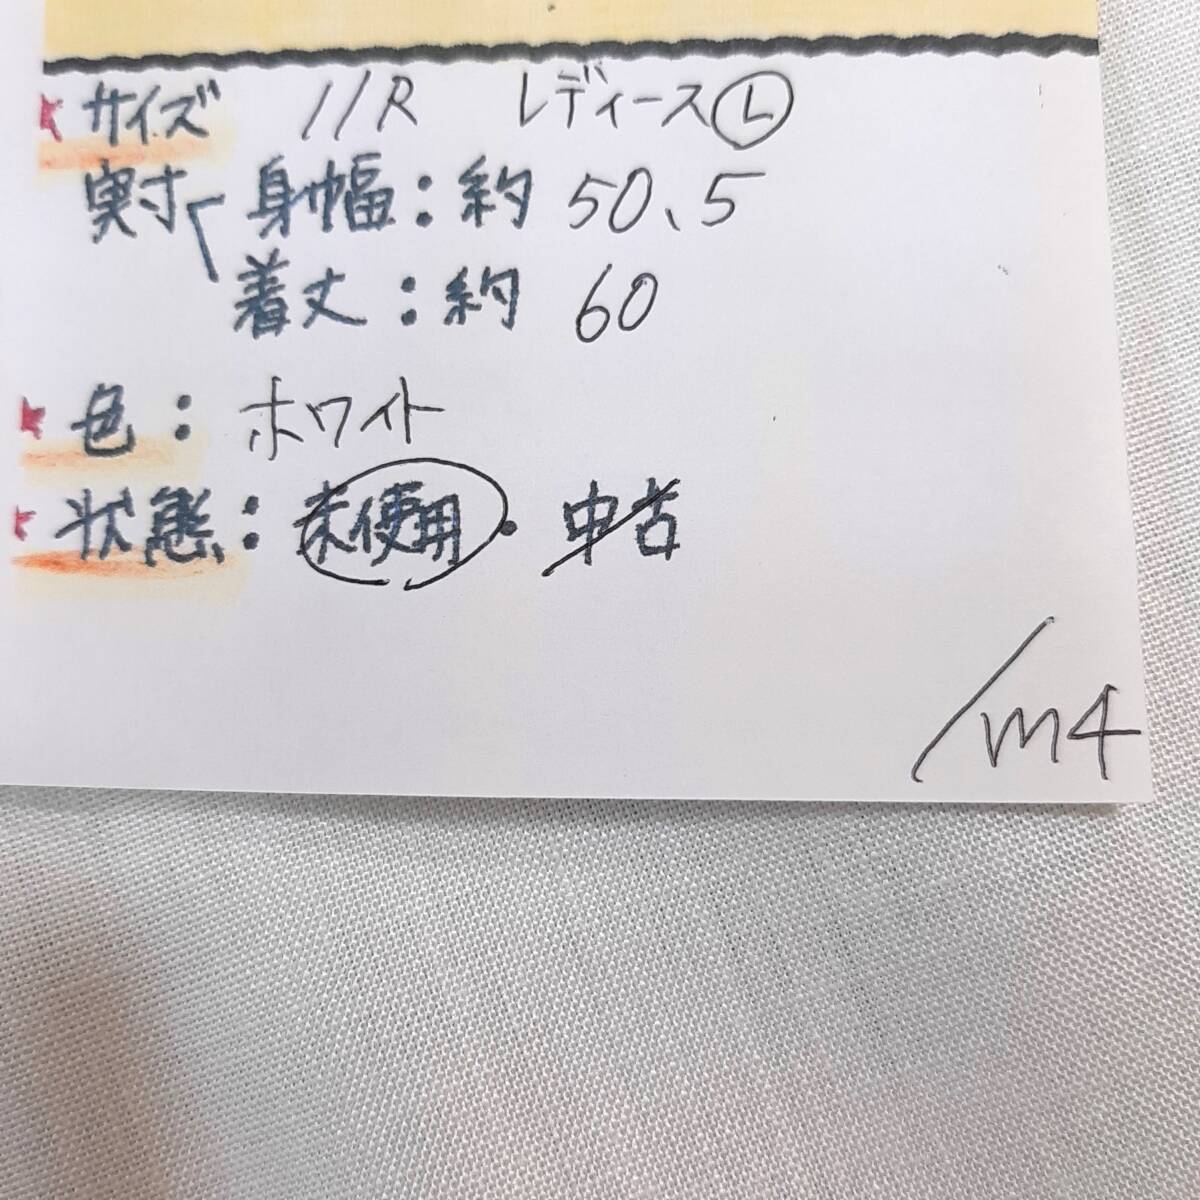 サイズ 11R レディースⓁ
実寸 身幅:約 50、5
着丈:約 60
色: ホワイト
状態:未使用・中古
/m4